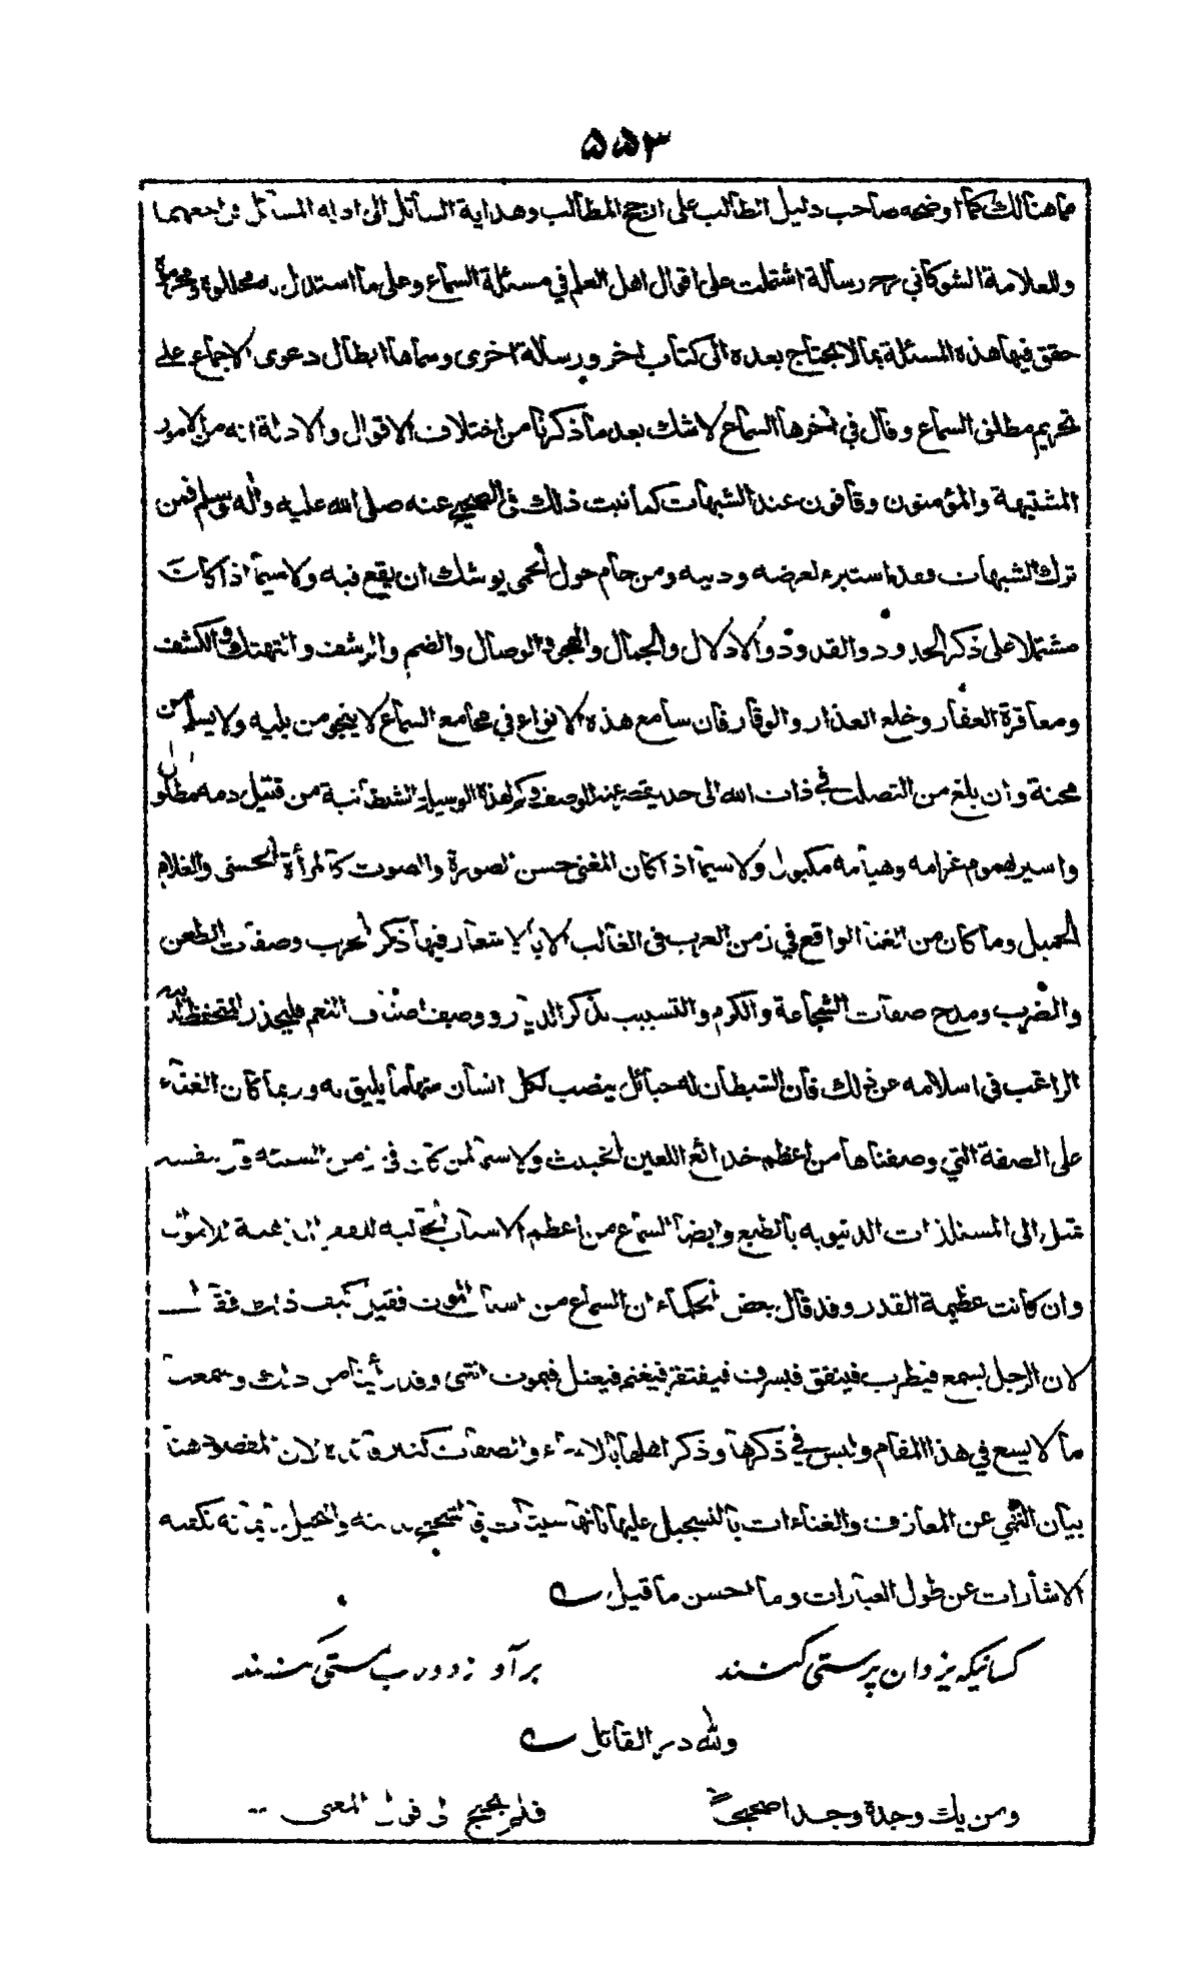 ٥٥٣
ما هنالك كما اوضحه صاحب دليل الطالب على ارجح المطالب وهداية السائل الى ادلة المسائل فراجعهما
وللعلامة الشوكاني رح رسالة اشتملت على اقوال اهل العلم في مسئلة السماع وعلى ما استدل به محللوه ومحرموه
حقق فيها هذه المسئلة بما لا يحتاج بعده الى كتاب اخر ورسالة اخرى وسماها ابطال دعوى الاجماع على
تحريم مطلق السماع وقال في اخرها السماع لا شك بعد ما ذكرنا من اختلاف الاقوال والادلة انه من الامور
المشتبهة والمؤمنون وقافون عند الشبهات كما ثبت ذلك في الصحيح عنه صلى الله عليه وآله وسلم فمن
ترك الشبهات فقد استبرء لعرضه ودينه ومن حام حول الحمى يوشك ان يقع فيه ولا سيما اذا كان
مشتملا على ذكر الخدود والقدود والادلال والجمال والهجر والوصال والضم والرشف والتهتك والكشف
ومعاقرة العقار وخلع العذار والوقار فان سامع هذه الانواع في مجامع السماع لا ينجو من بلية ولا يسلم من
محنة وان بلغ من التصلب في ذات الله الى حد يقصر عنه الوصف وكم لهذه الوسيلة الشيطانية من قتيل دمه مطلول
واسير بهموم غرامه وهيامه مكبول ولا سيما اذا كان المغني حسن الصورة والصوت كالمرأة الحسنى والغلام
الجميل وما كان من الغنا الواقع في زمن العرب في الغالب الا بالاشعار فيها ذكر الحرب وصفات الطعن
والضرب ومدح صفات الشجاعة والكرم والتشبيب بذكر الديار ووصف اصناف النعم فليحذر المتحفظ لدينه
الراغب في اسلامه عن ذلك فان الشيطان له حبائل ينصب لكل انسان منها ما يليق به وربما كان الغناء
على الصفة التي وصفناها من اعظم خدائع اللعين الخبيث ولا سيما لمن كان في زمن الشبيبة فان نفسه
تميل الى المستلذات الدنيوية بالطبع وايضا السماع من اعظم الاسباب الجالبة للفقر المذهبة للاموال
وان كانت عظيمة القدر وقد قال بعض الحكماء ان السماع من اسباب الموت فقيل كيف ذلك فقال
لان الرجل يسمع فيطرب فينفق فيسرف فيفتقر فيغتم فيعتل فيموت انتهى وقد رأينا من ذلك وسمعت
ما لا يسع في هذا المقام وليس في ذكرها وذكر اهلها بالاسماء والصفات كثير فائدة لان المقصود هنا
بيان النهي عن المعازف والغناءات بالتسجيل عليها بانها سيئات في الصحيح منه والجميل يتمانه تكفيه
الاشارات عن طول العبارات وما احسن ما قيل ؎
كسانيكه يزدان پرستى كنند
بر آواز دولاب مستى كنند
ولله در القائل ؎
ومن يك وجده وجدا صحيحا
فلم يحتج الى قول المغني